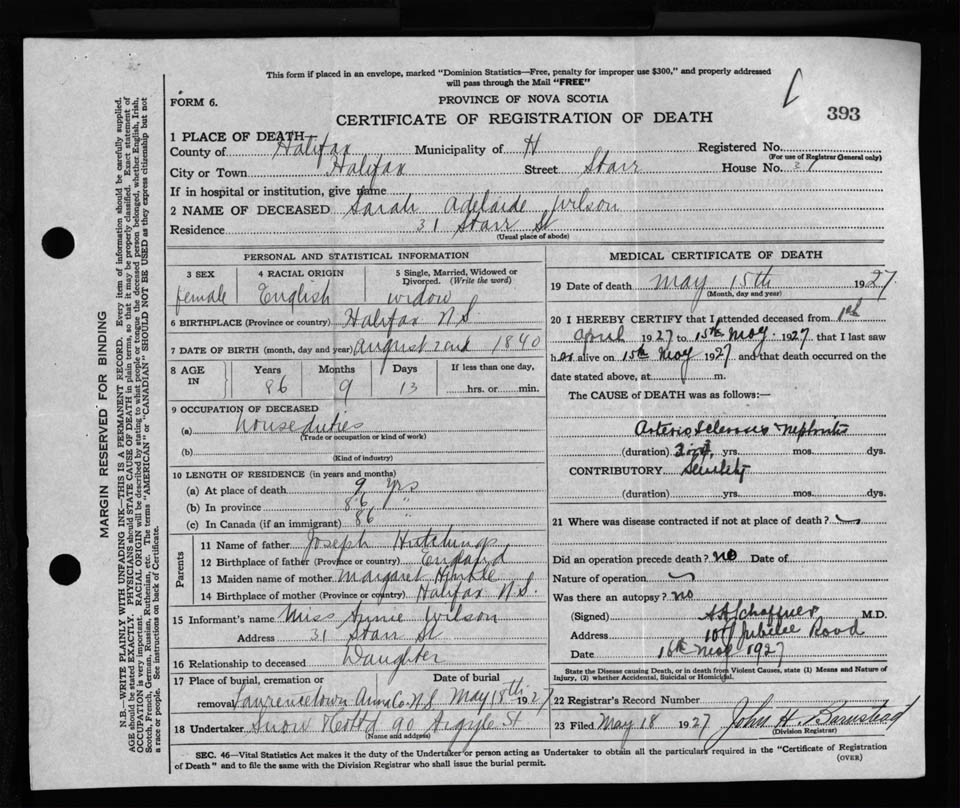 This form if placed in an envelope, marked "Dominion Statistics—Free, penalty for improper use $300," and properly addressed
will pass through the Mail "FREE"
FORM 6.
PROVINCE OF NOVA SCOTIA
393
CERTIFICATE OF REGISTRATION OF DEATH
1 PLACE OF DEATH—
County of Halifax Municipality of H Registered No.
(For use of Registrar General only)
City or Town Halifax Street Starr House No. 31
If in hospital or institution, give name
2 NAME OF DECEASED Sarah Adelaide Wilson
Residence 31 Starr St
(Usual place of abode)
PERSONAL AND STATISTICAL INFORMATION
3 SEX 4 RACIAL ORIGIN 5 Single, Married, Widowed or
Divorced. (Write the word)
female English widow
6 BIRTHPLACE (Province or country) Halifax N.S
7 DATE OF BIRTH (month, day and year) August 22nd 1840
8 AGE IN Years Months Days If less than one day,
86 9 13 hrs. or min.
9 OCCUPATION OF DECEASED
(a) house duties
(Trade or occupation or kind of work)
(b)
(Kind of industry)
10 LENGTH OF RESIDENCE (in years and months)
(a) At place of death 9 yrs
(b) In province 86 "
(c) In Canada (if an immigrant) 86 "
Parents
11 Name of father Joseph Hutchings
12 Birthplace of father (Province or country) England
13 Maiden name of mother Margaret
14 Birthplace of mother (Province or country) Halifax N.S.
15 Informant's name Miss Annie Wilson
Address 31 Starr St
16 Relationship to deceased Daughter
17 Place of burial, cremation or Date of burial
removal Lawrencetown Anna Co N.S May 18th 1927
18 Undertaker Snow & Co Ltd 90 Argyle St
(Name and address)
MEDICAL CERTIFICATE OF DEATH
19 Date of death May 15th 1927
(Month, day and year)
20 I HEREBY CERTIFY that I attended deceased from 1st
April 1927 to 15th May 1927 that I last saw
her alive on 15th May 1927 and that death occurred on the
date stated above, at m.
The CAUSE of DEATH was as follows:—
Arterio Sclerosis Nephritis
(duration) yrs. mos. dys.
CONTRIBUTORY Senility
(duration) yrs. mos. dys.
21 Where was disease contracted if not at place of death?
Did an operation precede death? no Date of
Nature of operation
Was there an autopsy? no
(Signed) Schaffner M.D.
Address Jubilee Road
Date 16th May 1927
State the Disease causing Death, or in death from Violent Causes, state (1) Means and Nature of
Injury, (2) whether Accidental, Suicidal or Homicidal.
22 Registrar's Record Number
23 Filed May 18 1927 John H. Barnstead
(Division Registrar)
SEC. 46—Vital Statistics Act makes it the duty of the Undertaker or person acting as Undertaker to obtain all the particulars required in the "Certificate of Registration
of Death" and to file the same with the Division Registrar who shall issue the burial permit.
(OVER)
MARGIN RESERVED FOR BINDING
N.B.—WRITE PLAINLY WITH UNFADING INK—THIS IS A PERMANENT RECORD. Every item of information should be carefully supplied.
AGE should be stated EXACTLY. PHYSICIANS should STATE CAUSE OF DEATH in plain terms, so that it may be properly classified. Exact statement of
OCCUPATION is very important. RACIAL ORIGIN will be described by stating to what people or tongue the deceased person belonged, whether English, Irish,
Scotch, French, German, Russian, Ruthenian, etc. The terms "AMERICAN" or "CANADIAN" SHOULD NOT BE USED as they express citizenship but not
a race or people. See instructions on back of Certificate.